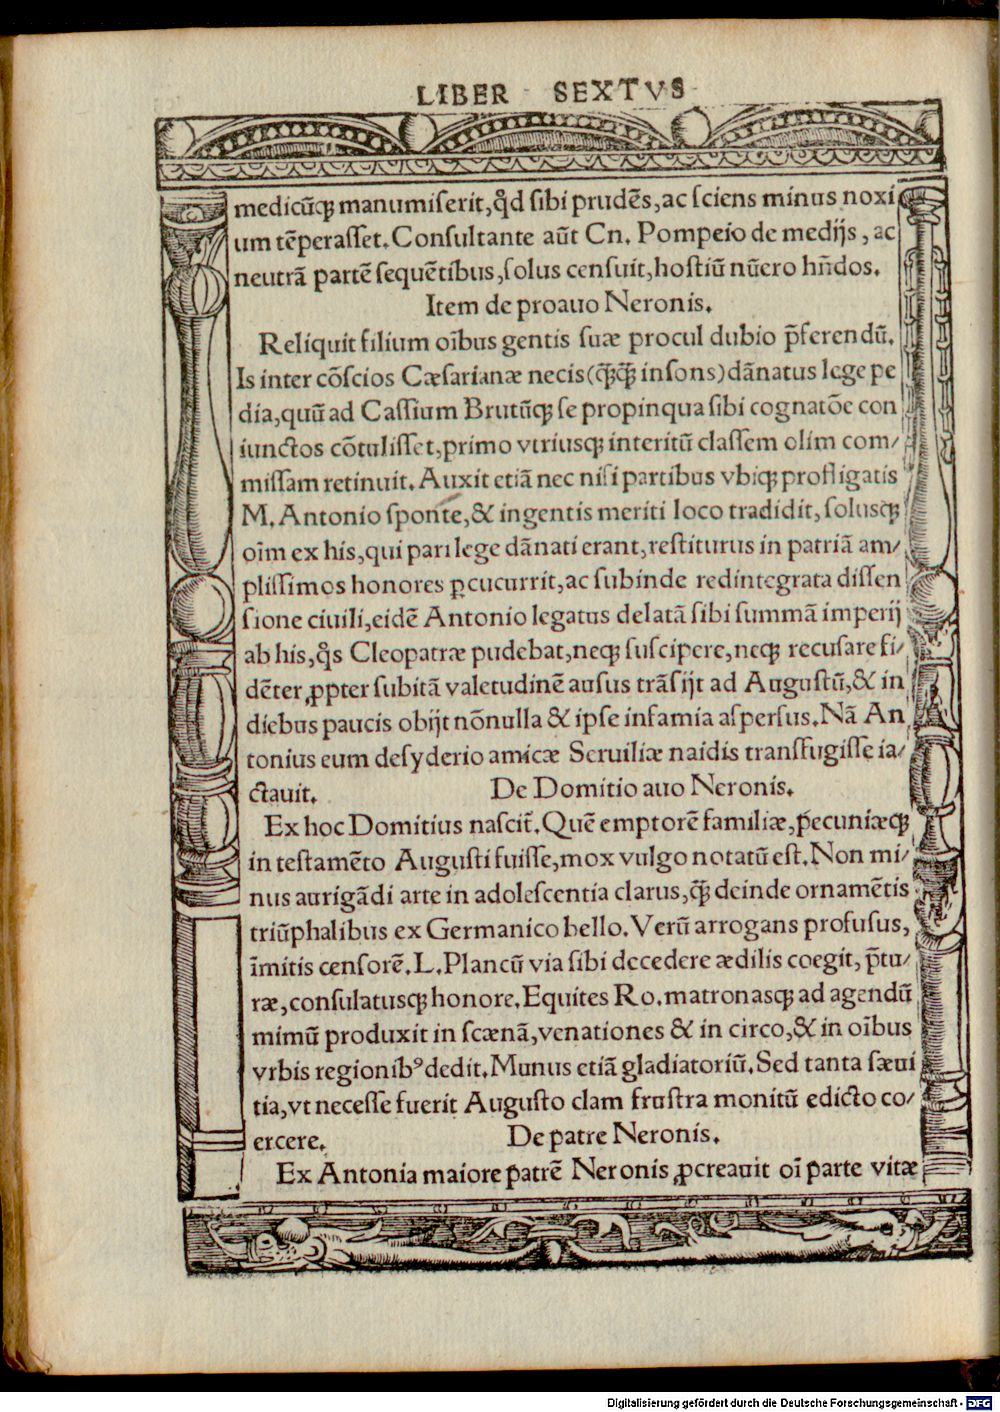 LIBER SEXTVS
medicũqꝫ manumiserit, qď sibi prudẽs, ac sciens minus noxi
um tẽperasset. Consultante aũt Cn. Pompeio de medijs, ac
neutrã partẽ sequẽtibus, solus censuit, hostiũ nũero hñdos.
Item de proauo Neronis.
Reliquit filium oĩbus gentis suæ procul dubio p̃ferendũ.
Is inter cõscios Cæsarianæ necis (q̃q̃ insons) dãnatus lege pe
dia, quũ ad Cassium Brutũqꝫ se propinqua sibi cognatõe con
iunctos cõtulisset, primo vtriusqꝫ interitũ classem olim com/
missam retinuit. Auxit etiã nec nisi partibus vbiqꝫ profligatis
M. Antonio sponte, & ingentis meriti loco tradidit, solusqꝫ
oĩm ex his, qui pari lege dãnati erant, restiturus in patriã am/
plissimos honores ꝑcucurrit, ac subinde redintegrata dissen
sione ciuili, eidẽ Antonio legatus delatã sibi summã imperij
ab his, q̊s Cleopatræ pudebat, neqꝫ suscipere, neqꝫ recusare fi/
dẽter, ꝓpter subitã valetudinẽ ausus trãsijt ad Augustũ, & in
diebus paucis obijt nõnulla & ipse infamia aspersus. Nã An
tonius eum desyderio amicæ Seruiliæ naidis transfugisse ia/
ctauit. De Domitio auo Neronis.
Ex hoc Domitius nascit̃. Quẽ emptorẽ familiæ, pecuniæqꝫ
in testamẽto Augusti fuisse, mox vulgo notatũ est. Non mi/
nus aurigãdi arte in adolescentia clarus, q̃ deinde ornamẽtis
triũphalibus ex Germanico bello. Verũ arrogans profusus,
ĩmitis censorẽ. L. Plancũ via sibi decedere ædilis coegit, p̃tu/
ræ, consulatusqꝫ honore. Equites Ro. matronasqꝫ ad agendũ
mimũ produxit in scænã, venationes & in circo, & in oĩbus
vrbis regionibꝰ dedit. Munus etiã gladiatoriũ. Sed tanta sæui
tia, vt necesse fuerit Augusto clam frustra monitũ edicto co/
ercere. De patre Neronis.
Ex Antonia maiore patrẽ Neronis ꝓcreauit oĩ parte vitæ
Digitalisierung gefördert durch die Deutsche Forschungsgemeinschaft - DFG